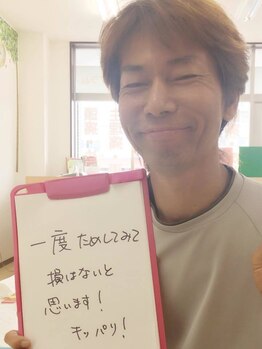 一度ためしてみて
損はないと
思います！
キッパリ！